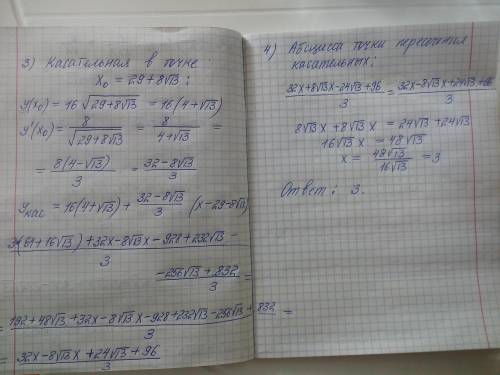 3) Касательная в точке
x₀ = 29+8√13 :
y(x₀) = 16√(29+8√13) = 16(4+√13)
y'(x₀) = 8/√(29+8√13) = 8/(4+√13) =
= 8(4-√13)/3 = (32-8√13)/3
yкас = 16(4+√13) + (32-8√13)/3 (x-29-8√13)
(3(64+16√13)+32x-8√13x-928+232√13 -
-256√13+832)/3 =
= (192+48√13+32x-8√13x-928+232√13-256√13+832)/3 =
= (32x-8√13x+24√13+96)/3
4) Абсцисса точки пересечения
касательных:
(32x+8√13x-24√13+96)/3 = (32x-8√13x+24√13+96)/3
8√13x+8√13x = 24√13+24√13
16√13x = 48√13
x = 48√13/16√13 = 3
Ответ: 3.